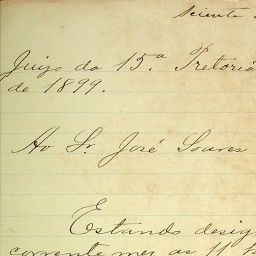 Sciente.
Juizo da 15ª Pretoria
de 1899.
Ao Sr. José Soares
Estando desig
corrente mez as 11 h